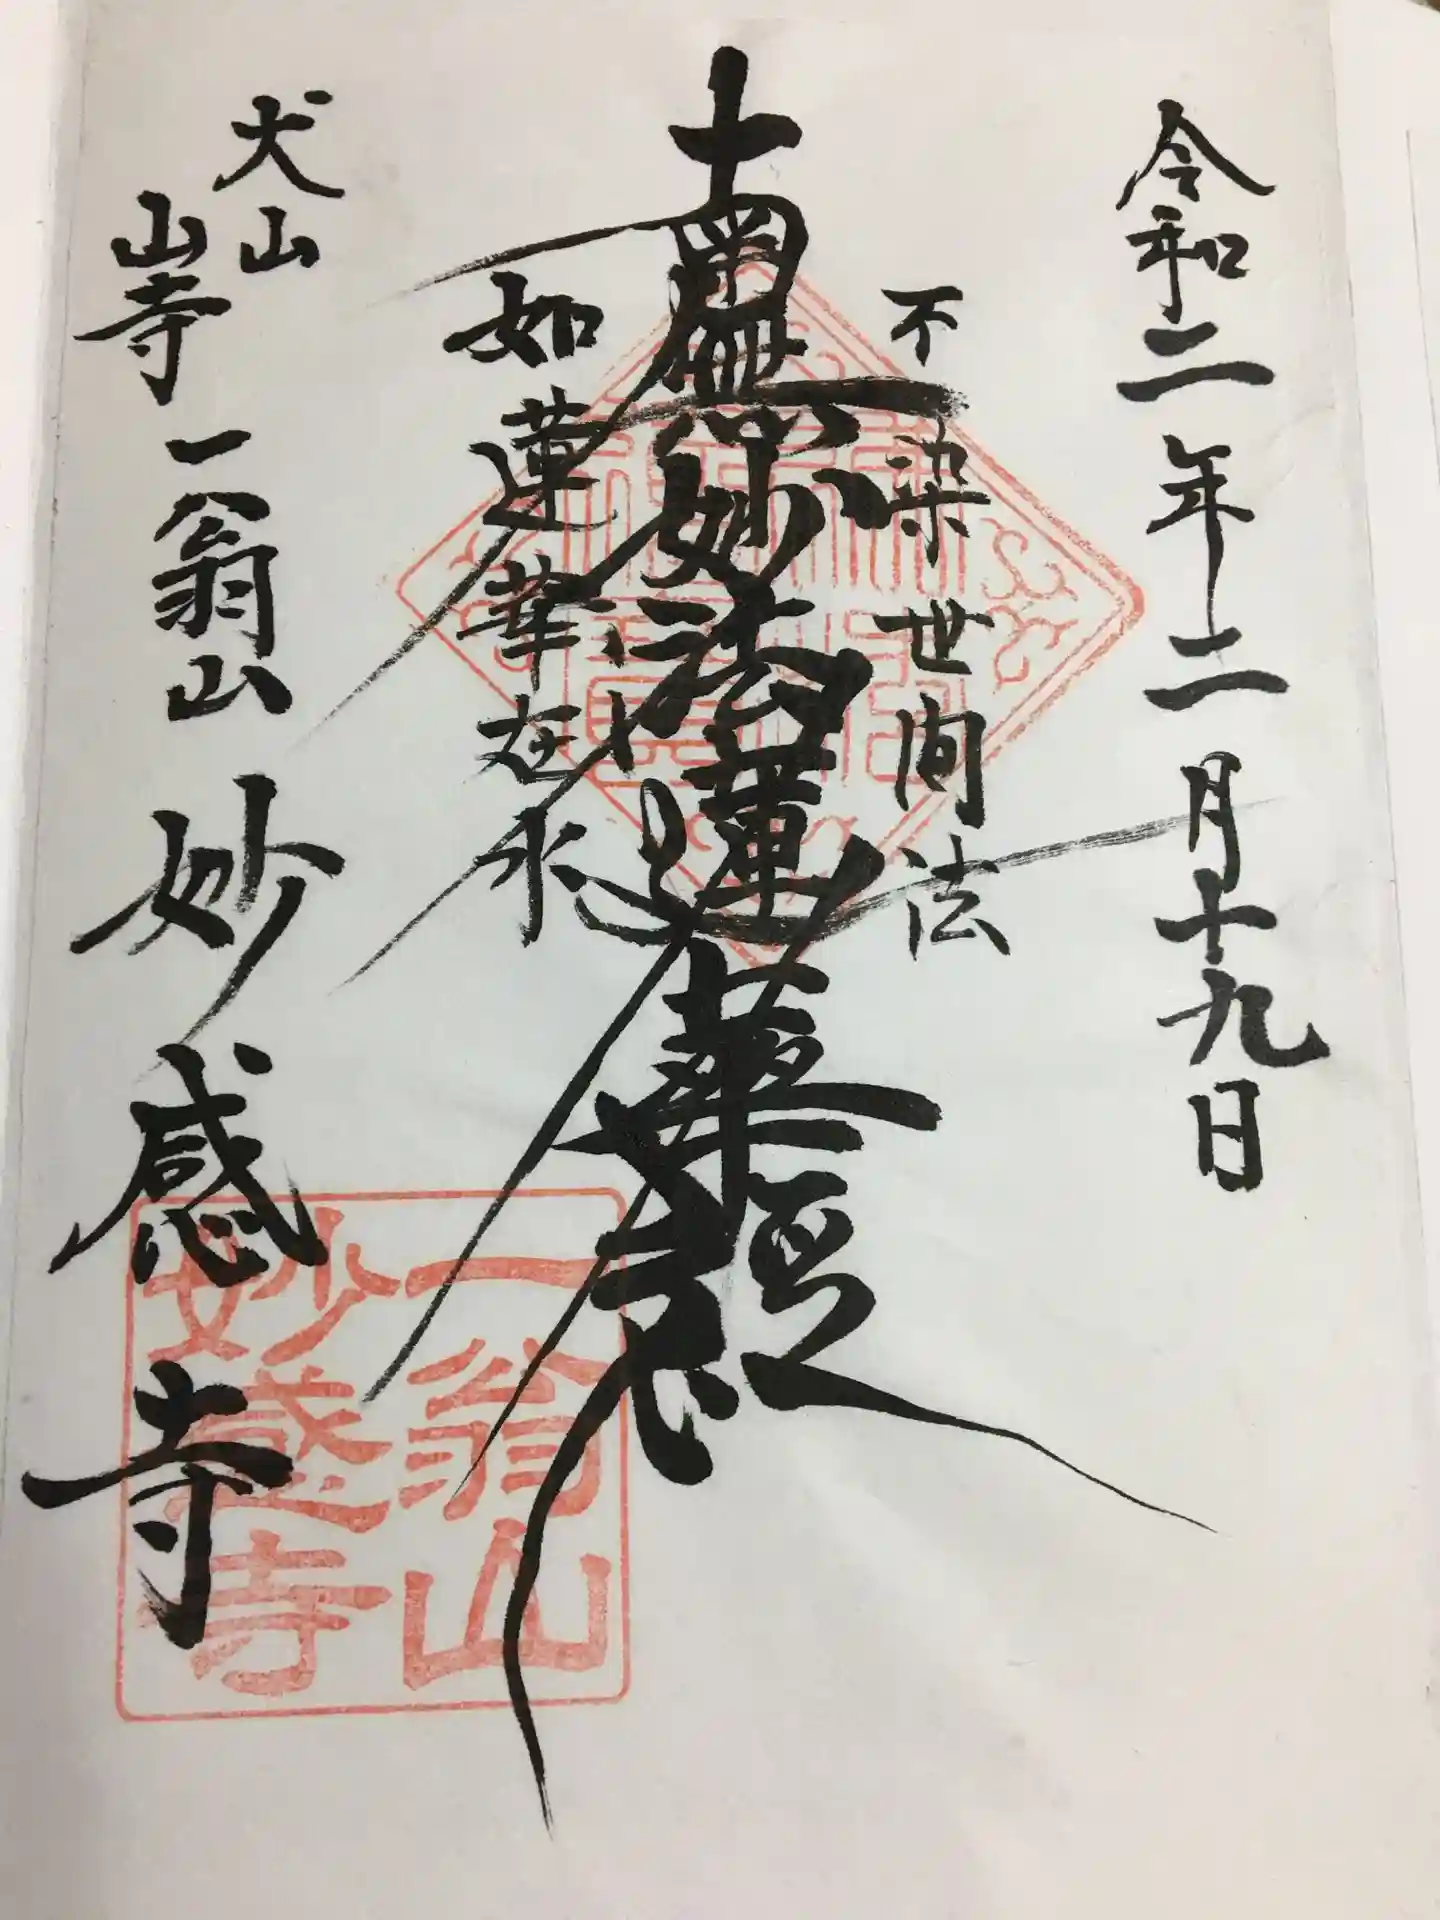 令和二年二月十九日
不染世間法
南無妙法蓮華経
如蓮華在水
犬山
山寺
一翁山 妙感寺
一翁山
妙感寺